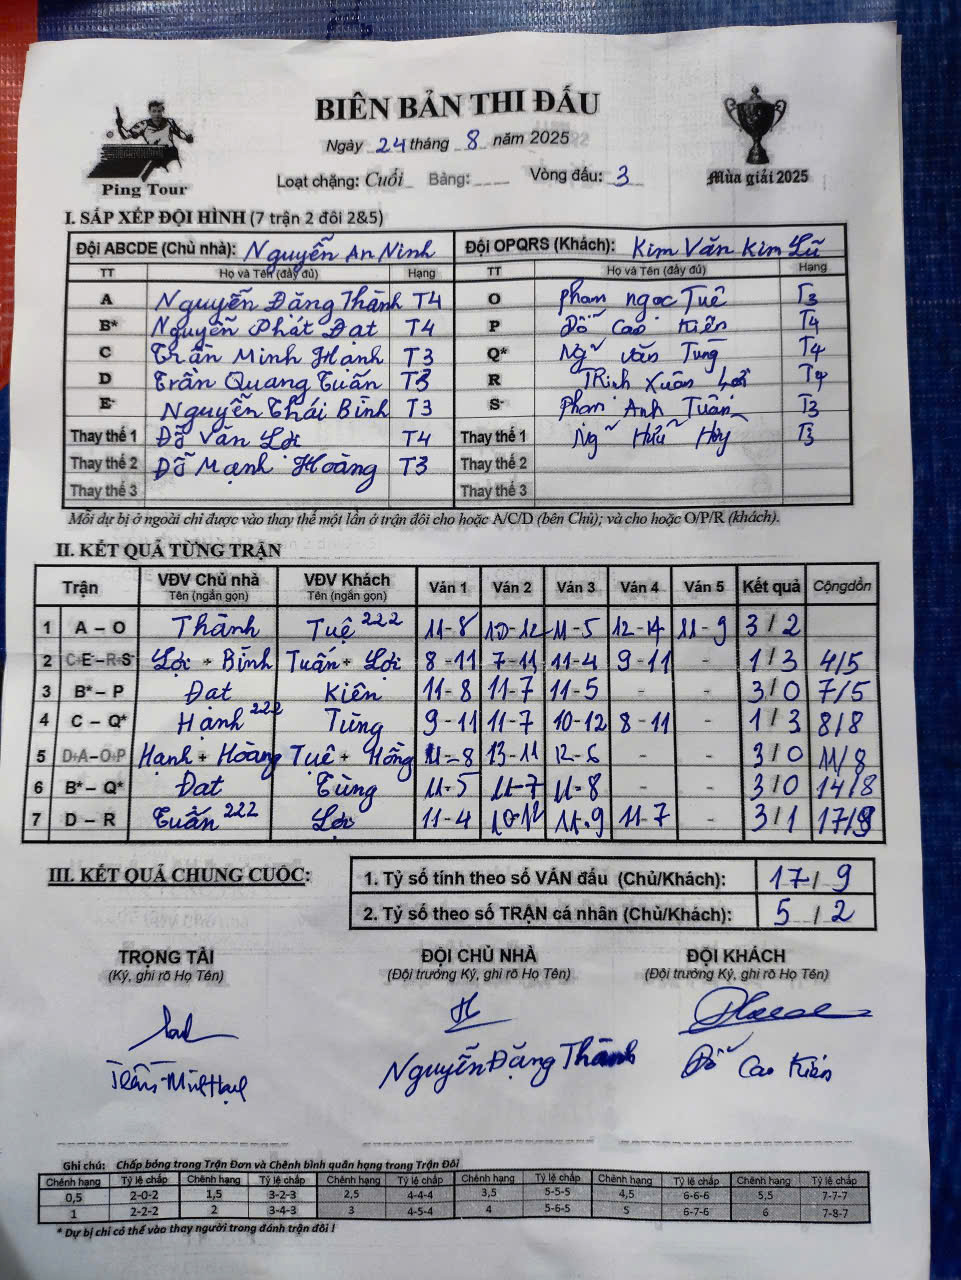 BIÊN BẢN THI ĐẤU
Ngày 24 tháng 8 năm 2025
Ping Tour
Loạt chặng: Cuối Bảng: Vòng đấu: 3
Mùa giải 2025
I. SẮP XẾP ĐỘI HÌNH (7 trận 2 đôi 2&5)
Đội ABCDE (Chủ nhà): Nguyễn An Ninh Đội OPQRS (Khách): Kim Văn Kim Lũ
TT Họ và Tên (đầy đủ) Hạng TT Họ và Tên (đầy đủ) Hạng
A Nguyễn Đặng Thành T4 O Phạm Ngọc Tuệ T3
B* Nguyễn Phát Đạt T4 P Đỗ Cao Kiên T4
C Trần Minh Hạnh T3 Q* Ng~ Văn Tùng T4
D Trần Quang Tuấn T3 R TRịnh Xuân Lợi T4
E Nguyễn Thái Bình T3 S Phạm Anh Tuấn T3
Thay thế 1 Đỗ Văn Lợi T4 Thay thế 1 Ng~ Hữu T3
Thay thế 2 Đỗ Mạnh Hoàng T3 Thay thế 2
Thay thế 3 Thay thế 3
Mỗi dự bị ở ngoài chỉ được vào thay thế một lần ở trận đôi cho hoặc A/C/D (bên Chủ); và cho hoặc O/P/R (khách).
II. KẾT QUẢ TỪNG TRẬN
Trận VĐV Chủ nhà Tên (ngắn gọn) VĐV Khách Tên (ngắn gọn) Ván 1 Ván 2 Ván 3 Ván 4 Ván 5 Kết quả Cộng dồn
1 A – O Thành Tuệ 222 11-8 10-12 11-5 12-14 11-9 3/2
2 C+E–R+S Lợi + Bình Tuấn + Lợi 8-11 7-11 11-4 9-11 - 1/3 4/5
3 B* – P Đạt Kiên 11-8 11-7 11-5 - - 3/0 7/5
4 C – Q* Hạnh 222 Tùng 9-11 11-7 10-12 8-11 - 1/3 8/8
5 D+A–O+P Hạnh + Hoàng Tuệ + Hồng 11-8 13-11 12-6 - - 3/0 11/8
6 B* – Q* Đạt Tùng 11-5 11-7 11-8 - - 3/0 14/8
7 D – R Tuấn 222 Lợi 11-4 10-12 11-9 11-7 - 3/1 17/9
III. KẾT QUẢ CHUNG CUỘC:
1. Tỷ số tính theo số VÁN đấu (Chủ/Khách): 17/9
2. Tỷ số theo số TRẬN cá nhân (Chủ/Khách): 5/2
TRỌNG TÀI ĐỘI CHỦ NHÀ ĐỘI KHÁCH
(Ký, ghi rõ Họ Tên) (Đội trưởng Ký, ghi rõ Họ Tên) (Đội trưởng Ký, ghi rõ Họ Tên)
Nguyễn Đặng Thành Đỗ Cao Kiên
Ghi chú: Chấp bóng trong Trận Đơn và Chênh bình quân hạng trong Trận Đôi
Chênh hạng Tỷ lệ chấp Chênh hạng Tỷ lệ chấp Chênh hạng Tỷ lệ chấp Chênh hạng Tỷ lệ chấp Chênh hạng Tỷ lệ chấp Chênh hạng Tỷ lệ chấp
0,5 2-0-2 1,5 3-2-3 2,5 4-4-4 3,5 5-5-5 4,5 6-6-6 5,5 7-7-7
1 2-2-2 2 3-4-3 3 4-5-4 4 5-6-5 5 6-7-6 6 7-8-7
* Dự bị chỉ có thể vào thay người trong đánh trận đôi !